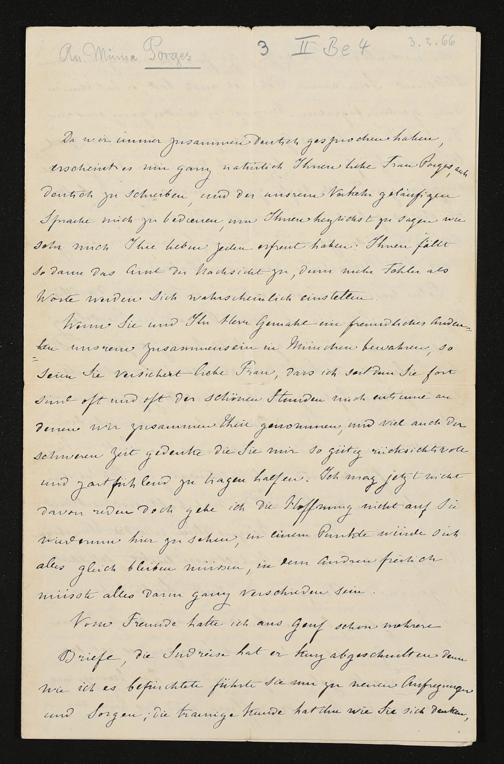 An Minna Porges 3 II Be 4 3.2.66
Da wir immer zusammen deutsch gesprochen haben,
erscheint es mir ganz natürlich Ihnen liebe Frau Porges, auch
deutsch zu schreiben, und der unserem Verkehr geläufigen
Sprache mich zu bedienen, um Ihnen herzlichst zu sagen wie
sehr mich Ihre lieben Zeilen erfreut haben. Ihnen fällt
so dann das Amt der Nachsicht zu, denn mehr Fehler als
Worte werden sich wahrscheinlich einstellen.
Wenn Sie und Ihr Herr Gemahl ein freundliches Anden-
ken unserem zusammensein in München bewahren, so
seien Sie versichert liebe Frau, dass ich seit dem Sie fort
sind oft und oft der schönen Stunden mich entsinne an
denen wir zusammen Theil genommen, und viel auch der
schweren Zeit gedenke die Sie mir so gütig rücksichtsvoll
und zartfühlend zu tragen halfen. Ich mag jetzt nicht
davon reden doch gebe ich die Hoffnung nicht auf Sie
wiederum hier zu sehen, in einem Punkte würde sich
alles gleich bleiben müssen, in dem Andren freilich
müsste alles dann ganz verschieden sein.
Vom Freunde hatte ich aus Genf schon mehrere
Briefe, die Südreise hat er kurz abgeschnitten denn
wie ich es befürchtete führte sie nur zu neuen Aufregungen
und Sorgen; die traurige Kunde hat ihn wie Sie sich denken,